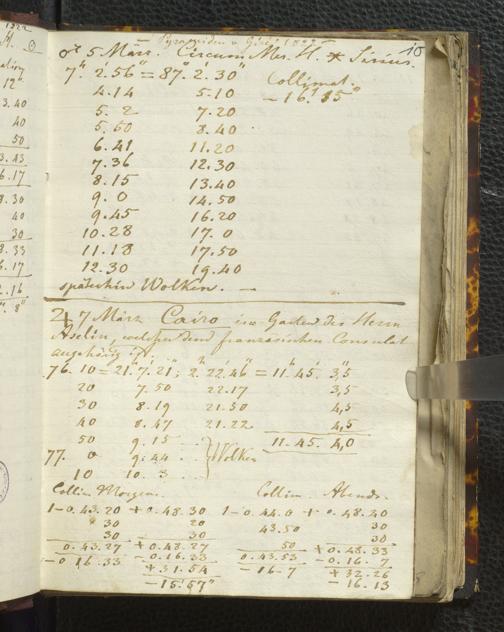 Pyramiden v. Gizé 1822
10
♂ 5 März. Circum Mer. H. * Sirius.
7h 2'.56" = 87° 2'.30" Collimat.
4.14 5.10 – 16'.15"
5.2 7.20
5.50 8.40
6.41 11.20
7.36 12.30
8.15 13.40
9.0 14.50
9.45 16.20
10.28 17.0
11.18 17.50
12.30 19.40
späterhin Wolken. —
♃ 7 März Cairo im Garten des Herrn
Aselin, welcher dem französischen Consulat
angehörig ist.
76. 10 = 21. 7. 21; 2. 22. 46 = 11. 45. 3,5
20 7.50 22.17 3,5
30 8.19 21.50 4,5
40 8.47 21.22 4,5
50 9.15 ... Wolken 11.45. 4,0
77. 0 9.44 ..
10 10.3 ...
Collim. Morgens. Collim. Abends.
1 – 0.43.20 + 0.48.30 1 – 0.44.0 + 0.48.40
30 20 43.50 30
30 30 50 30
0.43.27 + 0.48.27 0.43.53 + 0.48.33
– 0.16.33 – 0.16.33 – 16.7 – 0.16.7
+ 31.54 + 32.26
– 15.57" – 16.13